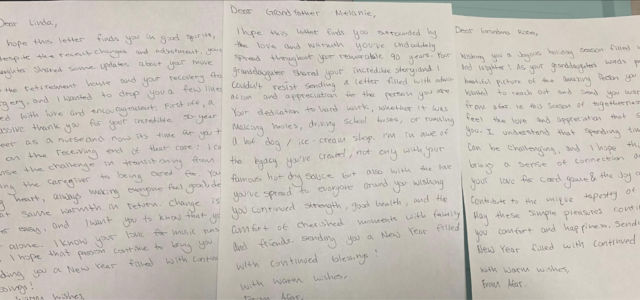 Dear Linda,
hope this letter finds you in good spirits,
despite the recent changes and adjustment. your
daughter shared some updates about your move
the retirement home and your recovery from
surgery, and I wanted to drop you a few lines
filled with love and encouragement. First off, a
massive thank you for your incredible 50-year
as a nurse and now as time as you
on the receiving end of that care, I can
the challenge in transitioning from
the caregiver to being cared for. Your
heart, always making everyone feel
that same warmth in return. Change is
easy, and I want you to know that you
alone. I know your love for
I hope that passion continue to bring you
sending you a New Year filled with contin
blessings!
warm wishes,
Dear Grandfather Melanie,
I hope this letter finds you surrounded by
the love and warmth you've undoubtedly
spread throughout your remarkable 90 years. Your
granddaughter shared your incredible story and I
couldn't resist sending a letter filled with
and appreciation for the person you are
Your dedication to hard work, whether it was
making, driving school buses, or running
a hot dog / ice cream shop. I'm in awe of
the legacy you've created, not only with your
famous hot dog sauce but also with the love
you've spread to everyone around you wishing
you continued strength, good health, and the
comfort of cherished moments with family
and friends. sending you a New Year filled
with continued blessings!
with warm wishes,
From Afar.
Dear Grandma Rose,
Wishing you a joyous holiday season filled
and laughter! As your granddaughter's words
beautiful picture of the amazing person you
wanted to reach out and send you warm
from afar. in this season of togetherness
feel the love and appreciation that
you. I understand that spending
can be challenging, and I hope this
brings a sense of connection
your love for card games & the joy
contribute to the unique tapestry of
May these simple pleasures contin
you comfort and happiness. Sendin
New Year filled with continued
with warm wishes,
From Afar.